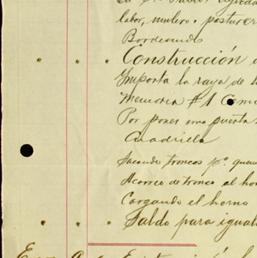 labor, muleros posturero
Bordeando
Construcción
Importa la raya de
Memoria #1 Com
Por poner una puerta
Cuadrilla
Sacando troncos pª quem
Acarreo de tronco al ho
Cargando el horno
Saldo para igual